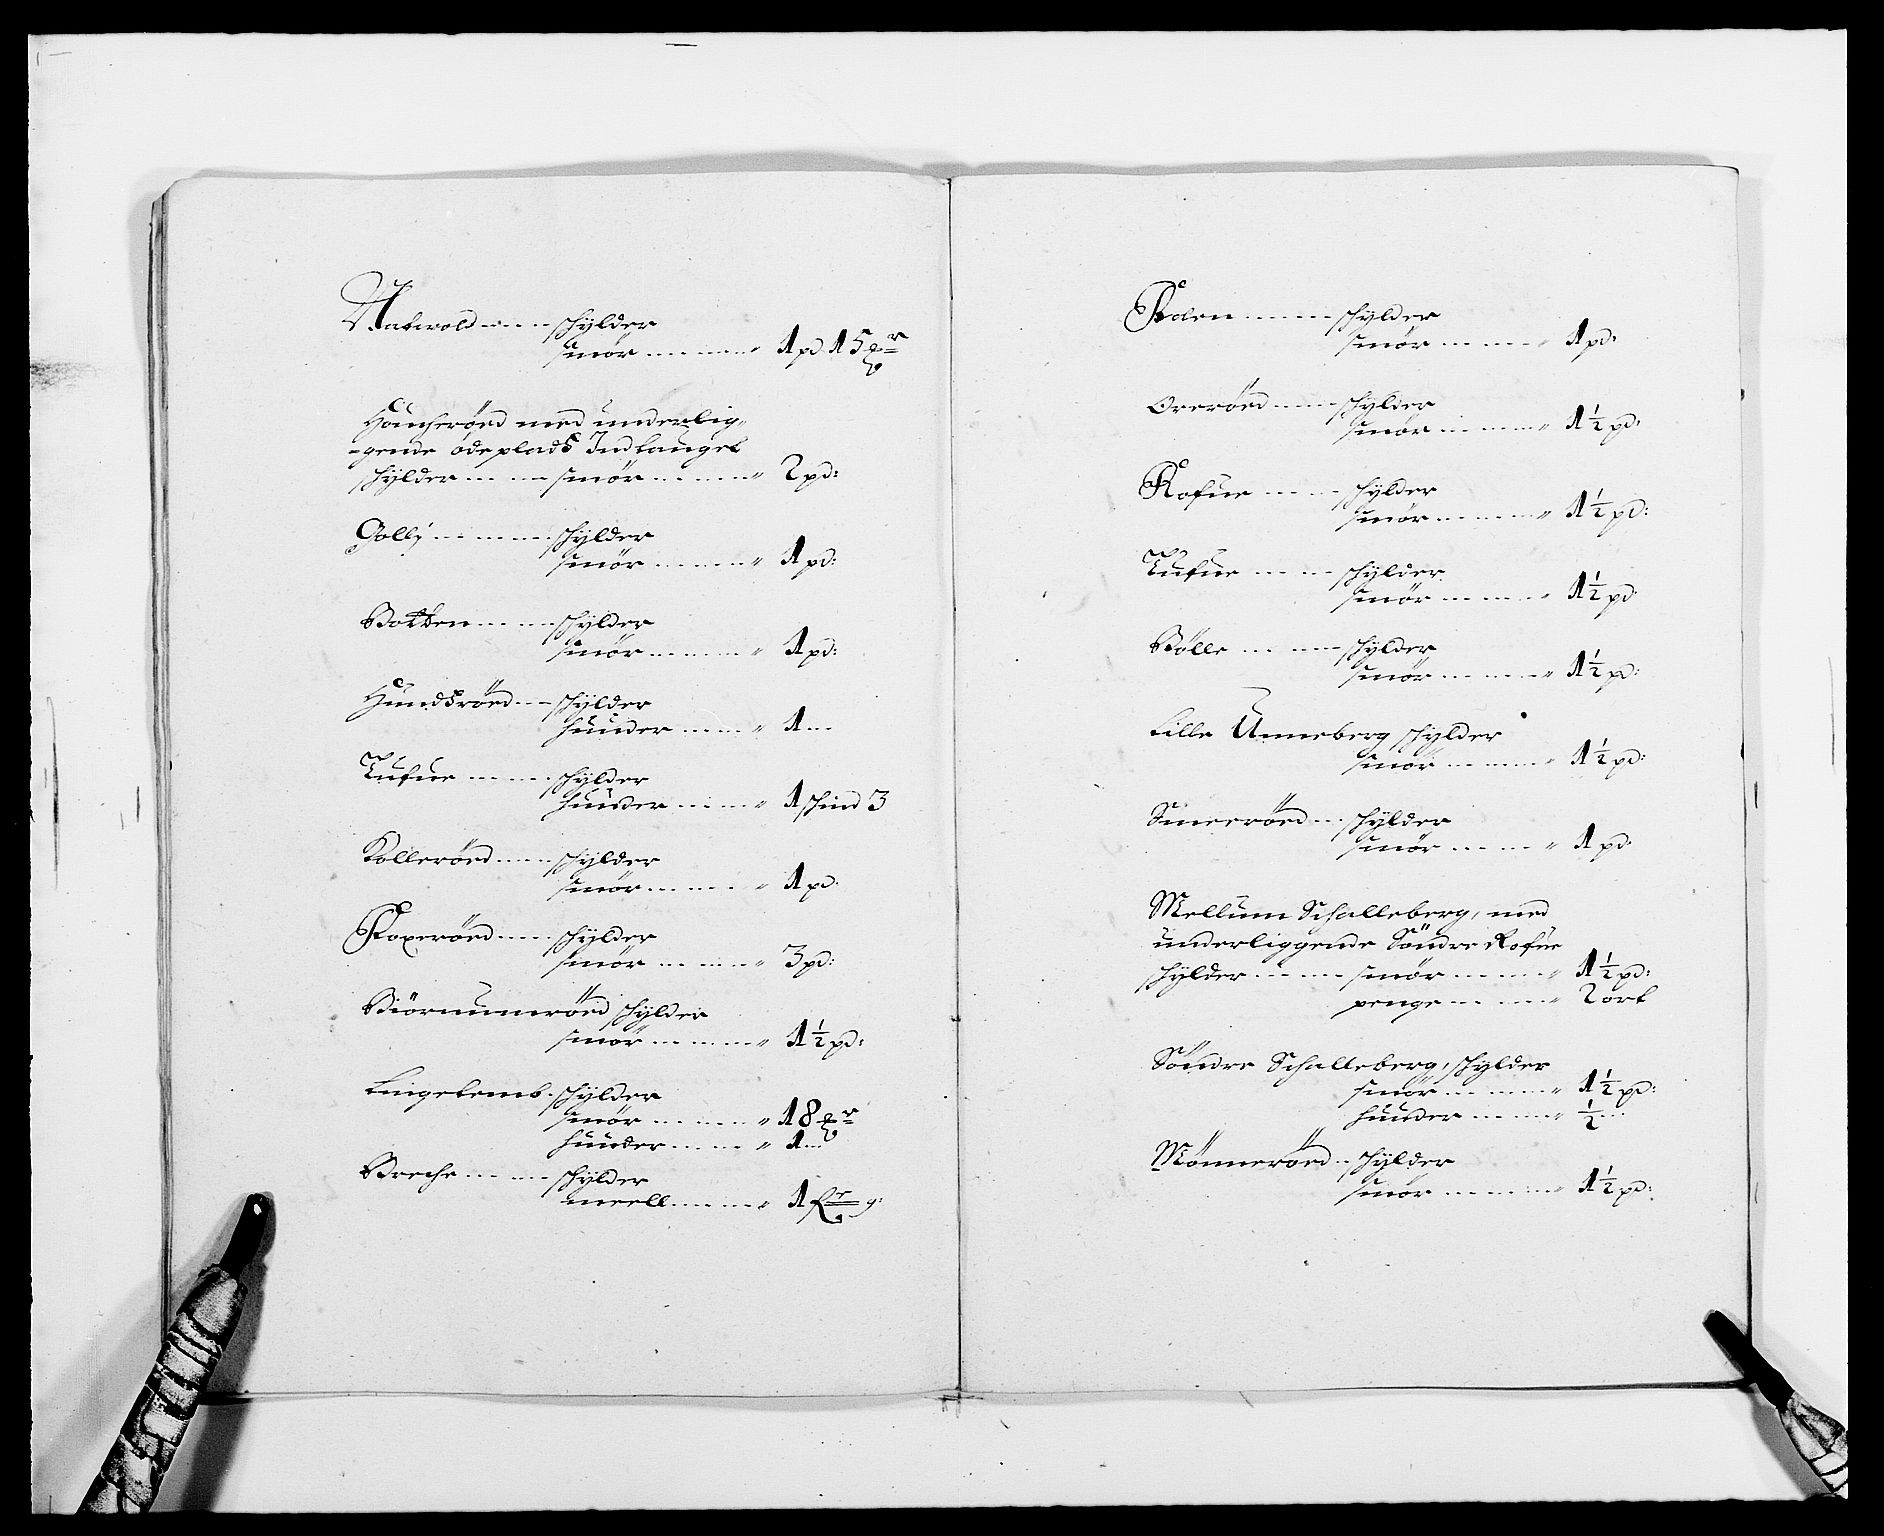 Natwold ---- schylder
smör ------ " 1 pd 15 ℔r
Hauserörd med underlig-
-gende ödeplads Indtauget
schylder ---- smör ------ " 2 pd:
Golli ------ schylder
smör ------ " 1 pd:
Botten ---- schylder
smör ------ " 1 pd:
Hundsrörd --- schylder
huuder ---- " 1 --
Tufue ----- schylder
huuder ---- " 1 schind 3
Kollerörd ---- schylder
smör ------ " 1 pd:
Foxerörd ---- schylder
smör ------ " 3 pd:
Biörnumrörd schylder
smör ------ " 1½ pd:
Lingetomb. schylder
smör ------ " 18 ℔r
huuder ----- " 1 --
Breche ----- schylder
meell ------ " 1
Folen ------ schylder
smör ----- " 1 pd:
Orerörd ---- schylder
smör ----- " 1½ pd:
Rofue ---- schylder
smör ------ " 1½ pd:
Tufue ---- schylder
smör ------ " 1½ pd
Bölle ---- schylder
smör ------ " 1½ pd:
Lille Unneberg schylder
smör ----- " 1½ pd:
Smerrörd -- schylder
smör ----- " 1 pd:
Mellum Schalleberg, med
underliggende Söndre Rofue
schylder ----- smör ----- " 1½ pd:
penge ----- " 2 ort
Söndre Schalleberg, schylder
smör ------ " 1½ pd:
huuder ----- " ½ --
Mönnerörd -- schylder
smör ------ " 1½ pd: